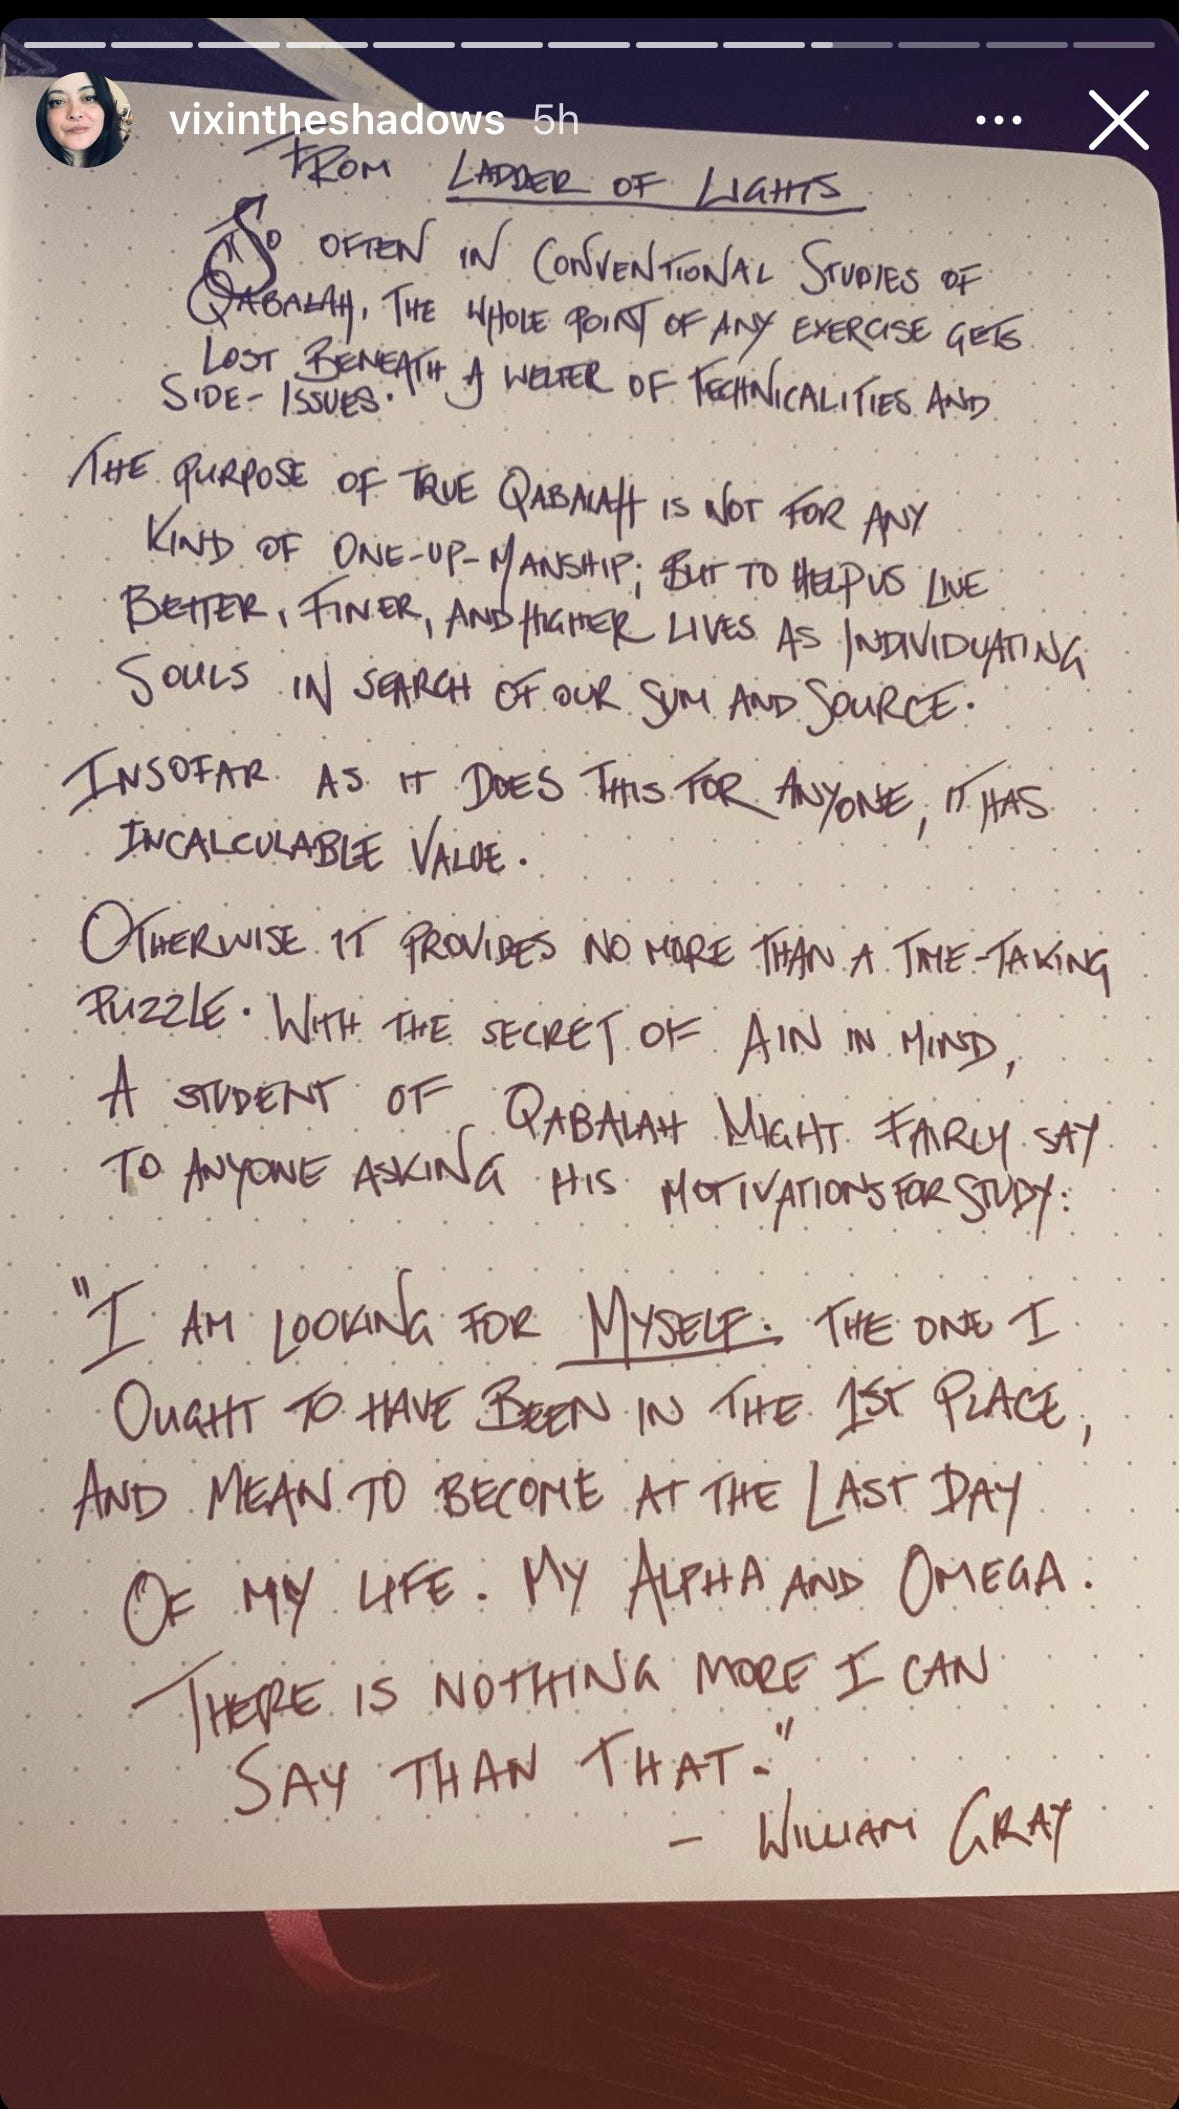 vixintheshadows 5h
FROM LADDER OF LIGHTS
SO OFTEN IN CONVENTIONAL STUDIES OF
QABALAH, THE WHOLE POINT OF ANY EXERCISE GETS
LOST BENEATH A WELTER OF TECHNICALITIES AND
SIDE-ISSUES.
THE PURPOSE OF TRUE QABALAH IS NOT FOR ANY
KIND OF ONE-UP-MANSHIP; BUT TO HELP US LIVE
BETTER, FINER, AND HIGHER LIVES AS INDIVIDUATING
SOULS IN SEARCH OF OUR SUM AND SOURCE.
INSOFAR AS IT DOES THIS FOR ANYONE, IT HAS
INCALCULABLE VALUE.
OTHERWISE IT PROVIDES NO MORE THAN A TIME-TAKING
PUZZLE. WITH THE SECRET OF AIN IN MIND,
A STUDENT OF QABALAH MIGHT FAIRLY SAY
TO ANYONE ASKING HIS MOTIVATIONS FOR STUDY:
"I AM LOOKING FOR MYSELF. THE ONE I
OUGHT TO HAVE BEEN IN THE 1ST PLACE,
AND MEAN TO BECOME AT THE LAST DAY
OF MY LIFE. MY ALPHA AND OMEGA.
THERE IS NOTHING MORE I CAN
SAY THAN THAT."
- WILLIAM GRAY